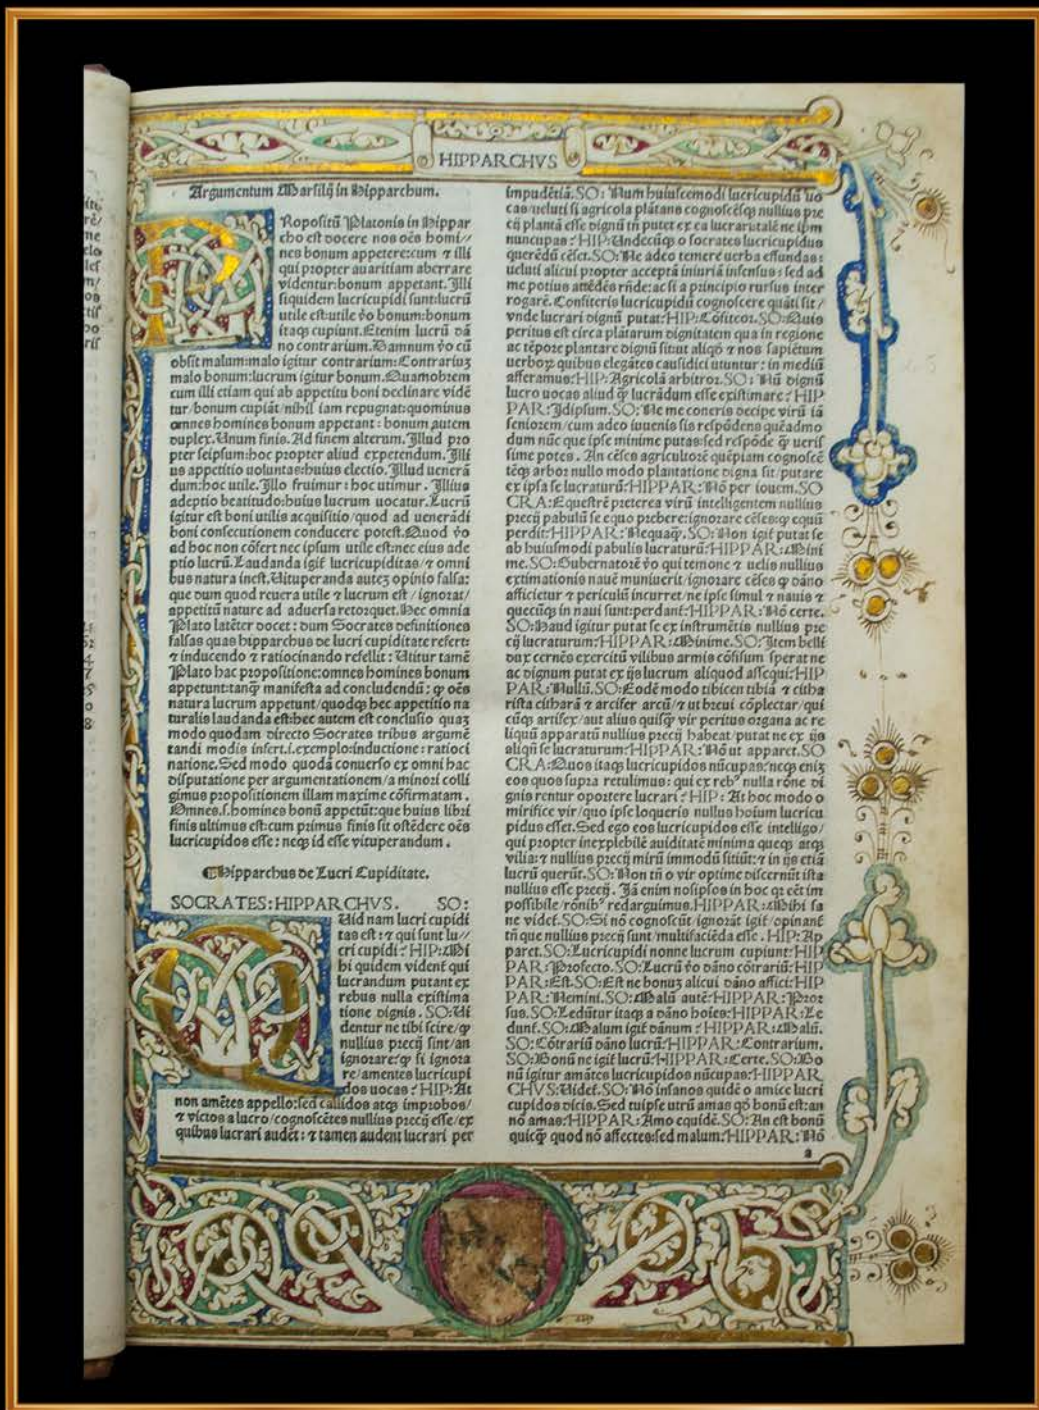 HIPPARCHVS
Argumentum Marsilij in Hipparchum.
PRopositū Platonis in Hippar
cho est docere nos oēs homi//
nes bonum appetere:cum ⁊ illi
qui propter auaritiam aberrare
videntur:bonum appetant.Illi
siquidem lucricupidi sunt:lucrū
utile est:utile ꝟo bonum:bonum
itaqꝫ cupiunt.Etenim lucrū dā
no contrarium.Damnum ꝟo cū
obsit malum:malo igitur contrarium:Contrariuꝫ
malo bonum:lucrum igitur bonum.Quamobrem
cum illi etiam qui ab appetitu boni declinare vidē
tur/bonum cupiāt/nihil iam repugnat:quominus
omnes homines bonum appetant : bonum autem
duplex.Unum finis.Ad finem alterum.Illud pro
pter seipsum:hoc propter aliud expetendum.Illi
us appetitio voluntas:huius electio.Illud uenerā
dum:hoc utile.Illo fruimur : hoc utimur . Illius
adeptio beatitudo:huius lucrum uocatur.Lucrū
igitur est boni utilis acquisitio/quod ad uenerādi
boni consecutionem conducere potest.Quod ꝟo
ad hoc non cōfert nec ipsum utile est:nec eius ade
ptio lucrū.Laudanda igit͛ lucricupiditas/⁊ omni
bus natura inest.Uituperanda auteꝫ opinio falsa:
que dum quod reuera utile ⁊ lucrum est / ignorat/
appetitū nature ad aduersa retorquet.Hec omnia
Plato latēter docet : dum Socrates definitiones
falsas quas hipparchus de lucri cupiditate refert:
⁊ inducendo ⁊ ratiocinando refellit : Utitur tamē
Plato hac propositione:omnes homines bonum
appetunt:tanꝙ manifesta ad concludendū : ꝙ oēs
natura lucrum appetunt/quodqꝫ hec appetitio na
turalis laudanda est:hec autem est conclusio quaꝫ
modo quodam directo Socrates tribus argumē
tandi modis infert.i.exemplo:inductione : ratioci
natione.Sed modo quodā conuerso ex omni hac
disputatione per argumentationem/a minori colli
gimus propositionem illam maxime cōfirmatam .
Omnes.s.homines bonū appetūt:que huius libri
finis ultimus est:cum primus finis sit ostēdere oēs
lucricupidos esse : neqꝫ id esse vituperandum .
¶Hipparchus de Lucri Cupiditate.
SOCRATES:HIPPARCHVS. SO:
QUid nam lucri cupidi
tas est : ⁊ qui sunt lu//
cri cupidi : HIP:Mi
bi quidem vident͛ qui
lucrandum putant ex
rebus nulla existima
tione dignis . SO:Ui
dentur ne tibi scire/ꝙ
nullius precij sint/an
ignorare:ꝙ si ignora
re/amentes lucricupi
dos uocas : HIP:At
non amētes appello:sed callidos atqꝫ improbos/
⁊ victos a lucro/cognoscētes nullius precij esse/ex
quibus lucrari audēt : ⁊ tamen audent lucrari per
impudētiā.SO: Num huiuscemodi lucricupidū uo
cas/ueluti si agricola plātans cognoscēsqꝫ nullius pre
cij plantā esse dignū tn̄ putet ex ea lucrari:talē ne ip̄m
nuncupas : HIP:Undecūqꝫ o socrates lucricupidus
querēdū cēset.SO:Ne adeo temere uerba effundas :
ueluti alicui propter acceptā iniuriā infensus : sed ad
me potius attēdēs rn̄de:ac si a principio rursus inter
rogarē.Confiteris lucricupidū cognoscere quāti sit /
vnde lucrari dignū putat:HIP:Cōfiteor.SO:Quis
peritus est circa plātarum dignitatem qua in regione
ac tēpore plantare dignū sit:ut aliqd̄ ⁊ nos sapiētum
uerboꝝ quibus elegātes causidici utuntur : in mediū
afferamus:HIP:Agricolā arbitror.SO : Nū dignū
lucro uocas aliud ꝙ̄ lucrādum esse existimare : HIP
PAR:Idipsum.SO:Ne me coneris decipe virū iā
seniorem/cum adeo iuuenis sis respōdens quēadmo
dum nūc que ipse minime putas:sed respōde ꝙ̄ ueris
sime potes . An cēses agricultorē quēpiam cognoscē
tēqꝫ arbor nullo modo plantatione digna sit/putare
ex ipsa se lucraturū:HIPPAR:Nō per iouem.SO
CRA:Equestrē preterea virū intelligentem nullius
precij pabulū se equo prebere:ignorare cēses:ꝙ equū
perdit:HIPPAR:Nequaꝙ̄.SO:Non igit͛ putat se
ab huiusmodi pabulis lucraturū:HIPPAR:Mini
me.SO:Gubernatorē ꝟo qui temone ⁊ uelis nullius
extimationis nauē muniuerit/ignorare cēses ꝙ dāno
afficietur ⁊ periculū incurret/ne ipse simul ⁊ nauis ⁊
quecūqꝫ in naui sunt:perdant͛:HIPPAR:Nō certe.
SO:Haud igitur putat se ex instrumētis nullius pre
cij lucraturum:HIPPAR:Minime.SO:Item belli
dux cernēs exercitū vilibus armis cōfisum sperat ne
ac dignum putat ex ijs lucrum aliquod assequi:HIP
PAR:Nullū.SO:Eodē modo tibicen tibiā ⁊ citha
rista citharā ⁊ arcifer arcū/⁊ ut breui cōplectar/qui
cūqꝫ artifex/aut alius quisqꝫ vir peritus organa ac re
liquū apparatū nullius precij habeat/putat ne ex ijs
aliqn̄ se lucraturum:HIPPAR:Nō ut apparet.SO
CRA:Quos itaqꝫ lucricupidos nūcupas:neqꝫ enīꝫ
eos quos supra retulimus : qui ex rebꝰ nulla rōne di
gnis rentur oportere lucrari : HIP : At hoc modo o
mirifice vir/quo ipse loqueris nullus hoium lucricu
pidus esset.Sed ego eos lucricupidos esse intelligo/
qui propter inexplebilē auiditatē minima queqꝫ atqꝫ
vilia: ⁊ nullius precij mirū immodū sitiūt: ⁊ in ijs etiā
lucrū querūt.SO:Non tn̄ o vir optime discernūt ista
nullius esse precij . Iā enim nosipsos in hoc qꝛ cēt im
possibile/rōnibꝰ redarguimus.HIPPAR:Mihi sa
ne videt͛.SO:Si nō cognoscūt/ignorāt igit͛/opinant͛
tn̄ que nullius precij sunt/multifaciēda esse . HIP:Ap
paret.SO:Lucricupidi nonne lucrum cupiunt:HIP
PAR:Profecto.SO:Lucrū ꝟo dāno cōtrariū:HIP
PAR:Est.SO:Est ne bonuꝫ alicui dāno affici:HIP
PAR:Nemini.SO:Malū autē:HIPPAR:Pror
sus.SO:Ledūtur itaqꝫ a dāno hoies:HIPPAR:Le
dunt͛.SO:Malum igit͛ dānum : HIPPAR:Malū.
SO:Cōtrariū dāno lucrū:HIPPAR:Contrarium.
SO:Bonū ne igit͛ lucrū:HIPPAR:Certe.SO:Bo
nū igitur amātes lucricupidos nūcupas:HIPPAR
CHVS:Uidet͛.SO:Nō insanos quidē o amice lucri
cupidos dicis.Sed tuipse utrū amas qd̄ bonū est:an
nō amas:HIPPAR:Amo equidē.SO:An est bonū
quicꝙ̄ quod nō affectes:sed malum:HIPPAR:Nō
a